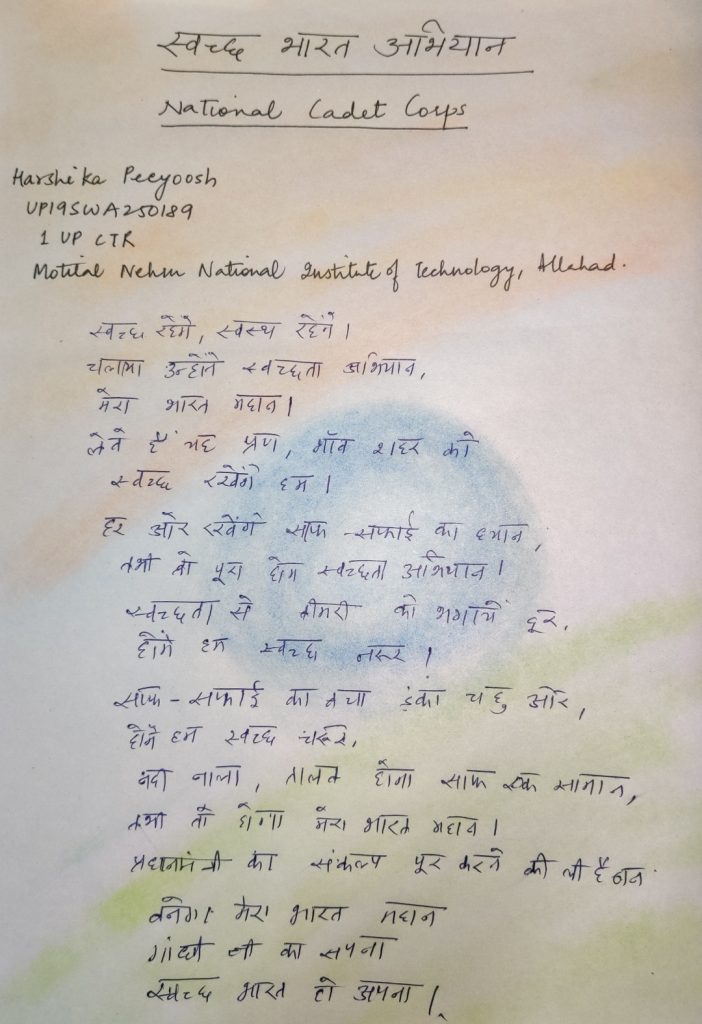 स्वच्छ भारत अभियान
National Cadet Corps
Harshika Peeyoosh
UP19SWA250189
1 UP CTR
Motilal Nehru National Institute of Technology, Allahad.
स्वच्छ रहेगे, स्वस्थ रहेगें।
चलाया उन्होंने स्वच्छता अभियान,
मेरा भारत महान।
लेते हैं यह प्रण, गाँव शहर को
स्वच्छ रखेंगे हम।
हर ओर रखेंगे साफ-सफाई का ध्यान,
तभी तो पूरा होगा स्वच्छता अभियान।
स्वच्छता से बीमरी को भगायें दूर,
होंगे हम स्वच्छ जरूर।
साफ-सफाई का बचा डंका चहु ओर,
होगें हम स्वच्छ
नाला, तालब होगा साफ एक सामान,
तभी तो होगा मेरा भारत महान।
प्रधानमंत्री का संकल्प पूर करने की ली है
बनेगा मेरा भारत महान
गांधी जी का सपना
स्वच्छ भारत हो अपना।